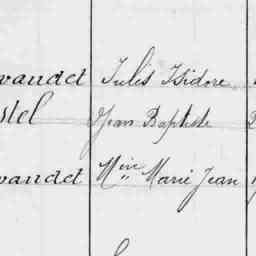 vaudet Jules Isidore
stel Jean Baptiste
vaudet Mïn Marie Jean